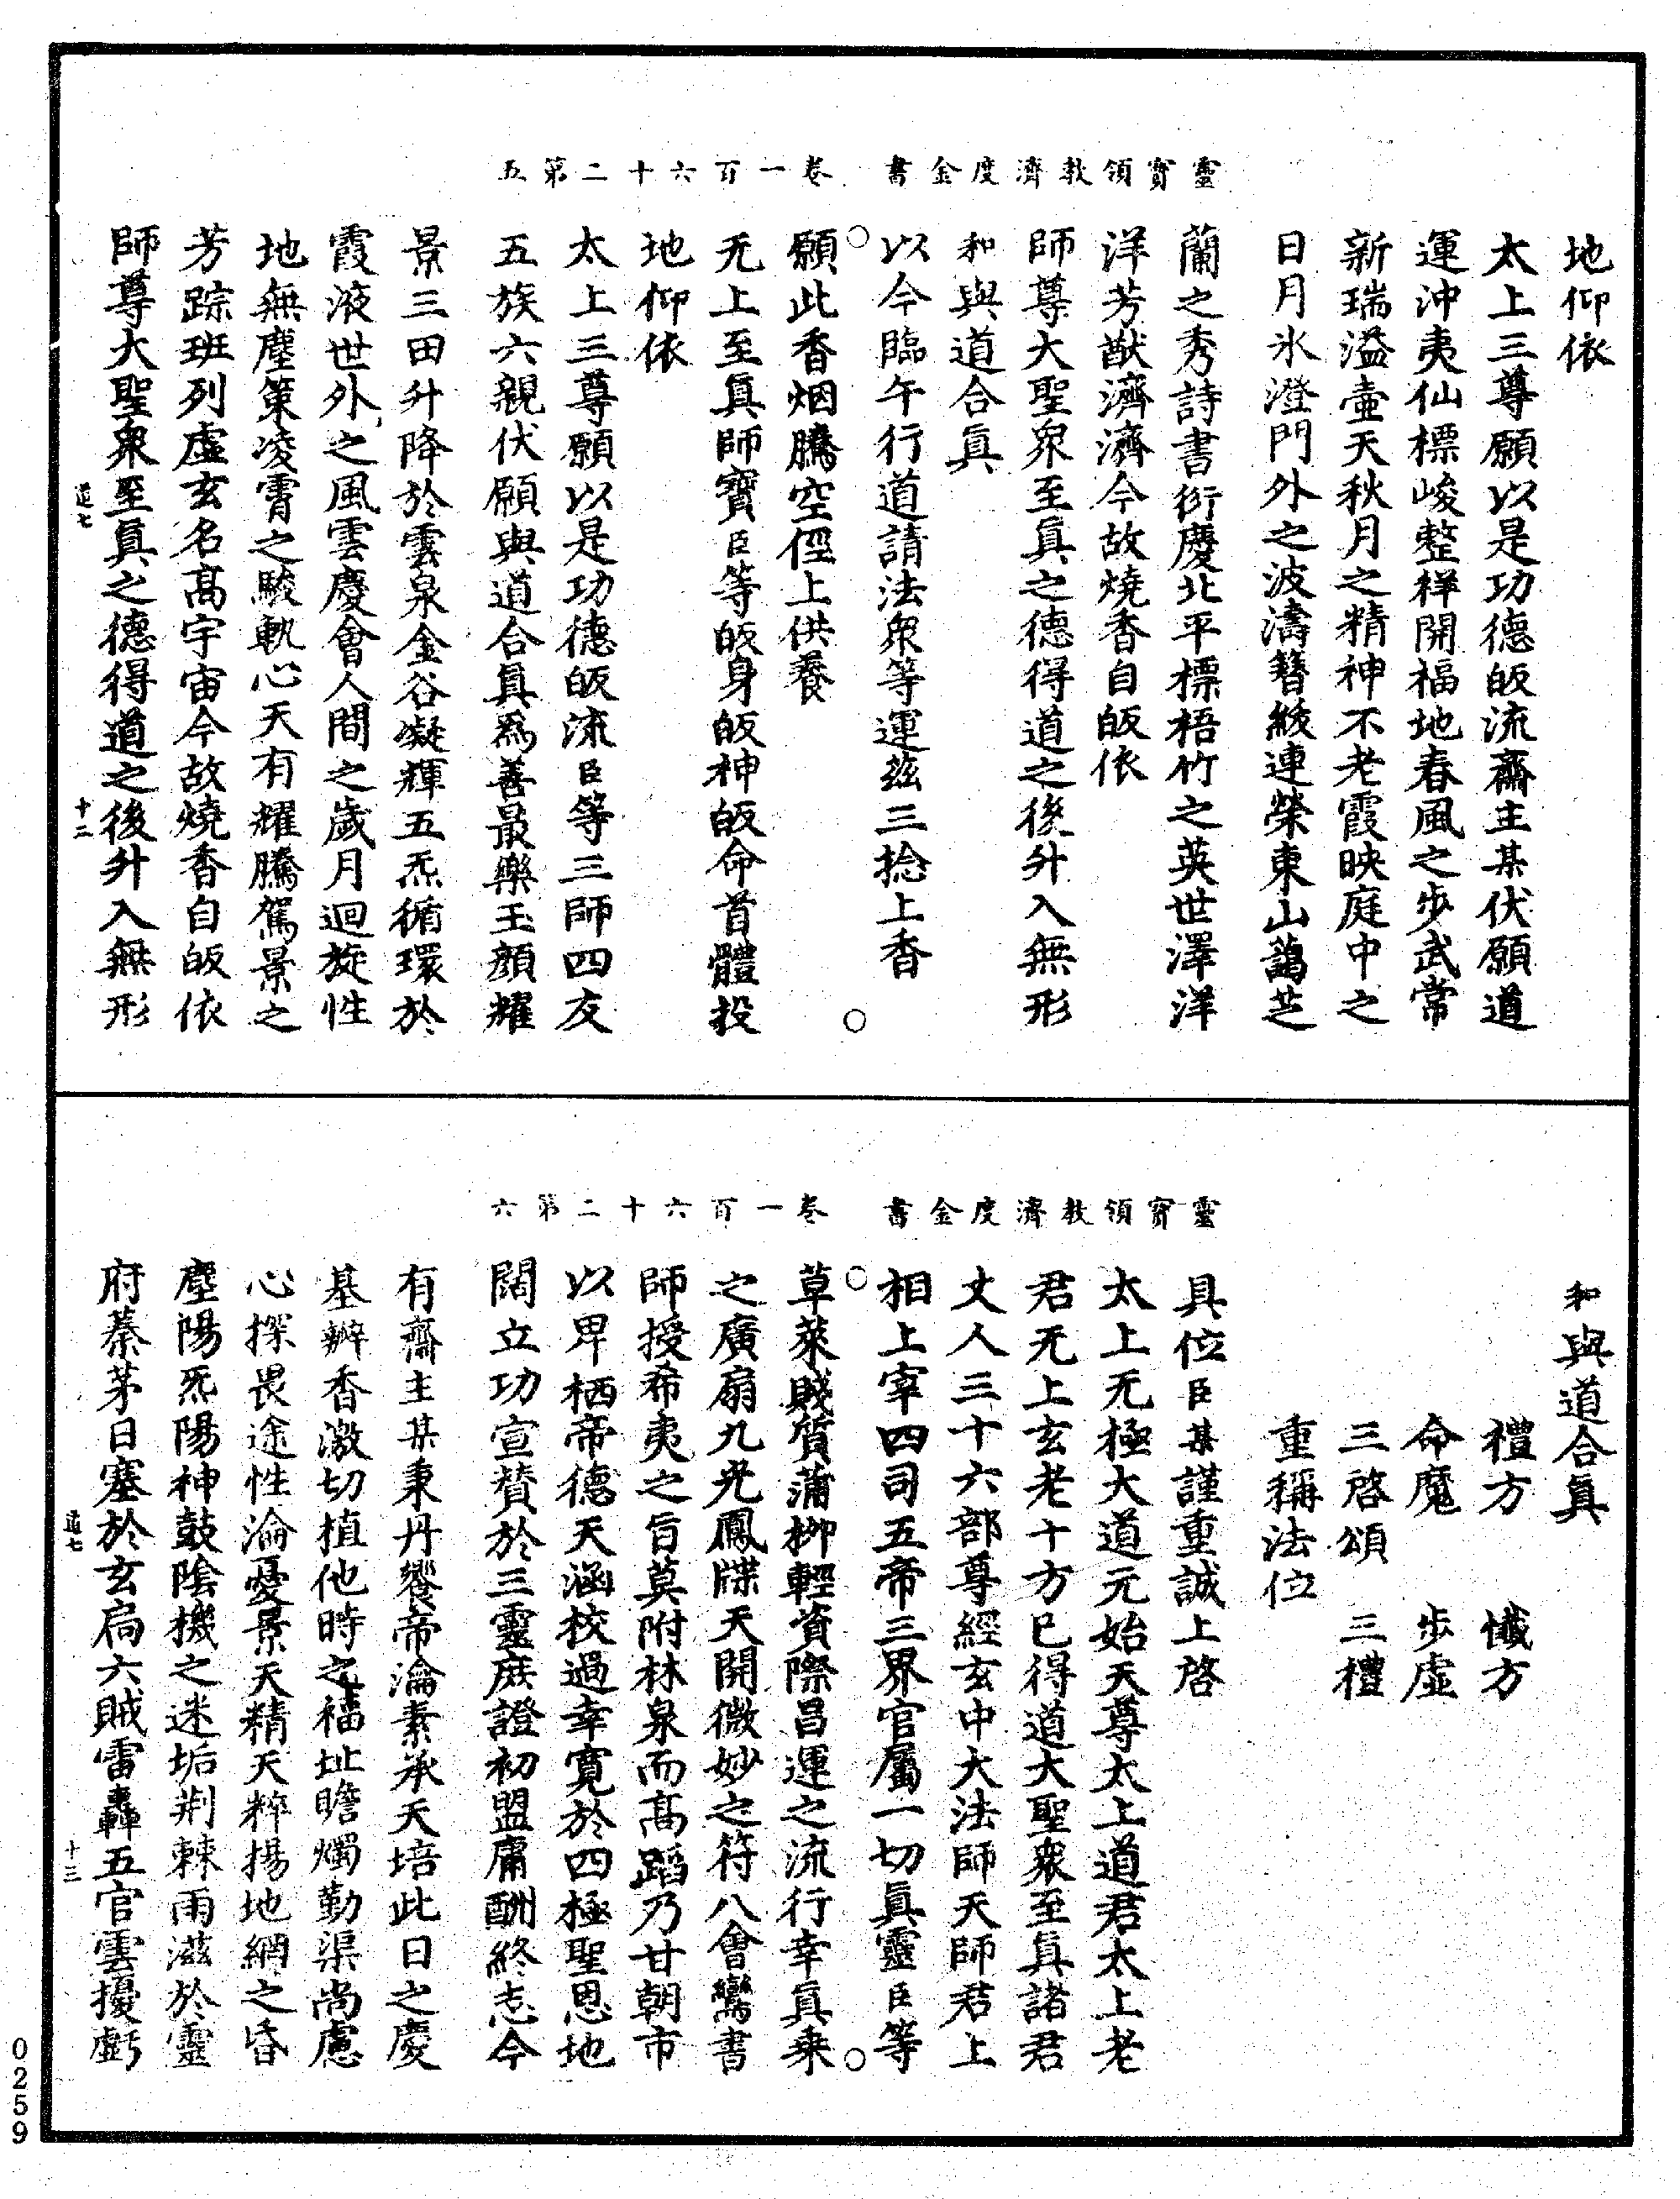 靈寳領教濟度金書　卷一百六十二第五
地仰依
太上三尊願以是功德皈流齋主某伏願道
運沖夷仙標峻整祥開福地春風之步武常
新瑞溢壷天秋月之精神不老霞映庭中之
日月氷澄門外之波濤簪綬連榮東山藹芝
蘭之秀詩書衍慶北平標梧竹之英世澤洋
洋芳猷濟濟今故燒香自皈依
師尊大聖衆至眞之德得道之後升入無形
和與道合眞
以今臨午行道請法衆等運茲三捻上香
願此香烟騰空徑上供養
无上至眞師寶臣等皈身皈神皈命首體投
地仰依
太上三尊願以是功德皈流臣等三師四友
五族六親伏願與道合眞爲善最樂玉顔耀
景三田升降於雲泉金谷凝輝五炁循環於
霞液世外之風雲慶會人間之歲月迴旋性
地無塵策凌霄之駿軌心天有耀騰駕景之
芳踪班列虛玄名高宇宙今故燒香自皈依
師尊大聖衆至眞之德得道之後升入無形
道七　十二
靈寳領教濟度金書　卷一百六十二第六
和與道合眞
禮方　懺方
命魔　步虛
三啓頌　三禮
重稱法位
具位臣某謹重誠上啓
太上无極大道元始天尊太上道君太上老
君无上玄老十方已得道大聖衆至眞諸君
丈人三十六部尊經玄中大法師天師君上
相上宰四司五帝三界官屬一切眞靈臣等
草萊賤質蒲柳輕資際昌運之流行幸眞乗
之廣扇九光鳳牒天開微妙之符八會鸞書
師授希夷之旨莫附林泉而高蹈乃甘朝市
以卑栖帝德天涵校過幸寬於四極聖恩地
闊立功宣賛於三靈庶證初盟庸酬終志今
有齋主某秉丹饗帝瀹素承天培此日之慶
基辦香激切植他時之福址瞻燭勤渠尚慮
心探畏途性淪憂景天精天粹揚地網之昏
塵陽炁陽神鼓陰機之迷垢荆棘雨滋於靈
府蓁茅日塞於玄扃六賊雷轟五官雲擾虧
道七　十三
0259